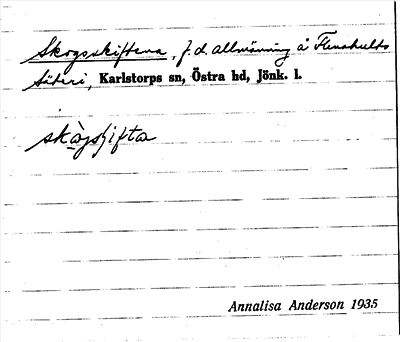 Skogsskiftena, f.d. allmänning å Flenshults
Säteri, Karlstorps sn, Östra hd, Jönk. l.
skògsʃifta
Annalisa Anderson 1935